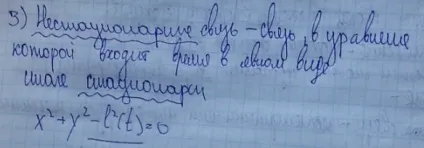 3) Нестационарные связь – связь, в уравнение
которой входит время в явном виде
иначе стационарн
x² + y² - l²(t) = 0